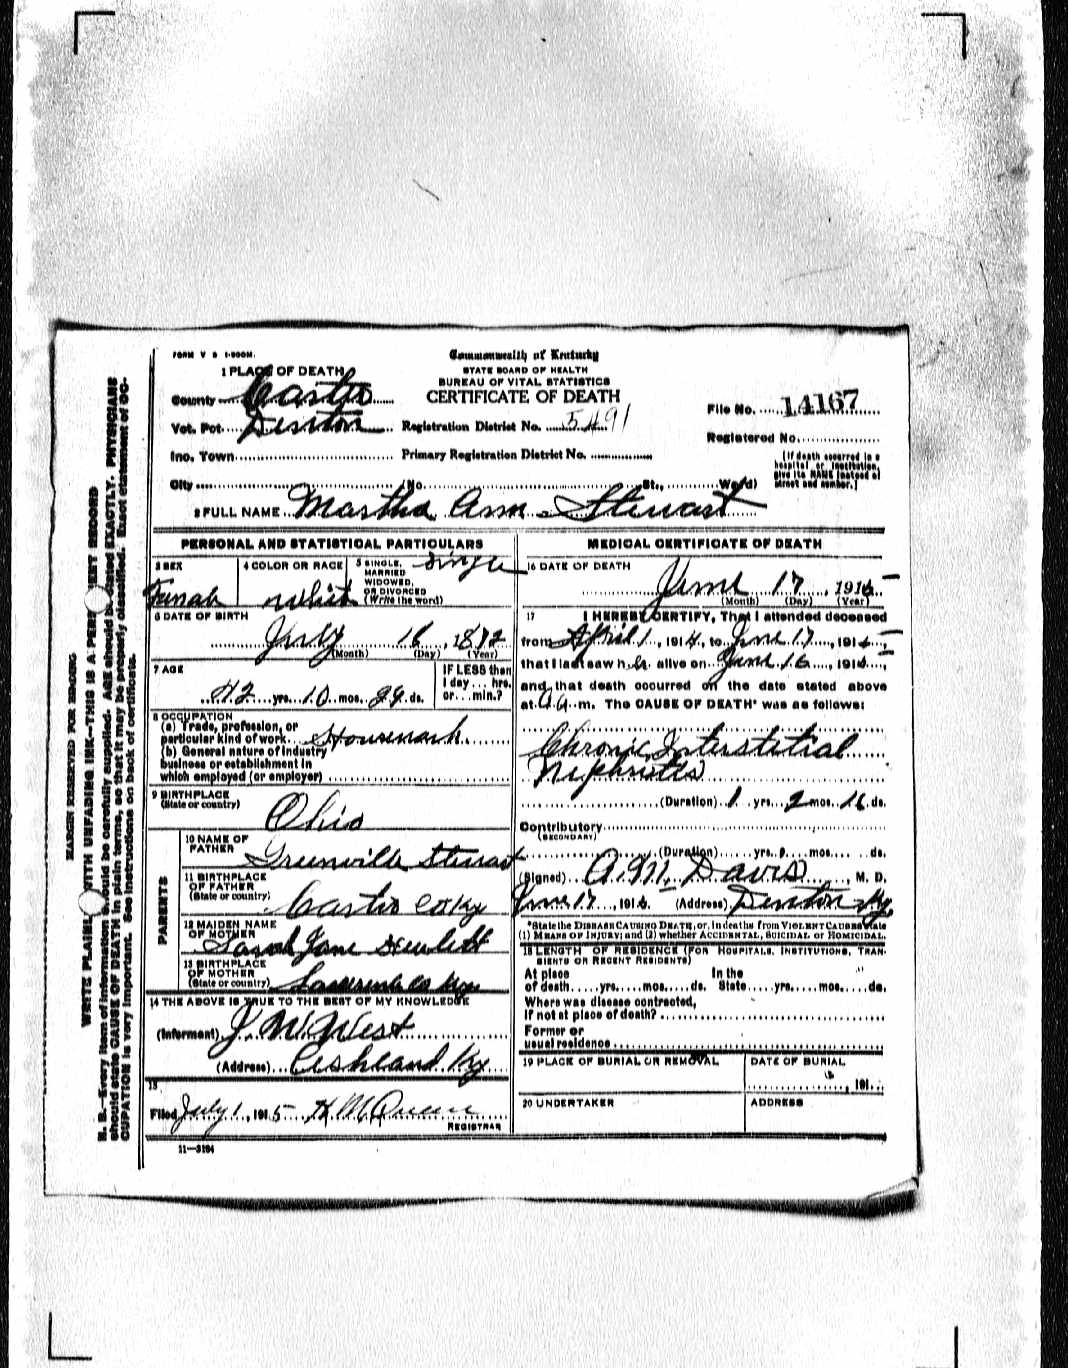 FORM V S 1-500M.
Commonwealth of Kentucky
STATE BOARD OF HEALTH
BUREAU OF VITAL STATISTICS
CERTIFICATE OF DEATH
1 PLACE OF DEATH
County Carter
Vot. Pct. Denton Registration District No. 5491
File No. 14167
Inc. Town Primary Registration District No.
Registered No.
City No. St., Ward)
[If death occurred in a
hospital or institution,
give its NAME instead of
street and number.]
2 FULL NAME Martha Ann Stewart
PERSONAL AND STATISTICAL PARTICULARS
3 SEX
Femal
4 COLOR OR RACE
Whit
5 SINGLE,
MARRIED
WIDOWED,
OR DIVORCED
(Write the word)
Single
6 DATE OF BIRTH
July 18, 1872
(Month) (Day) (Year)
7 AGE
42 yrs. 10 mos. 29 ds.
IF LESS than
1 day... hrs.
or... min.?
8 OCCUPATION
(a) Trade, profession, or
particular kind of work. Housework
(b) General nature of industry
business or establishment in
which employed (or employer)
9 BIRTHPLACE
(State or country)
Ohio
PARENTS
10 NAME OF
FATHER
Greenville Stewart
11 BIRTHPLACE
OF FATHER
(State or country)
Carter Co Ky
12 MAIDEN NAME
OF MOTHER
Sarah Jane Hewlett
13 BIRTHPLACE
OF MOTHER
(State or country)
Lawrence Co Ky
14 THE ABOVE IS TRUE TO THE BEST OF MY KNOWLEDGE
(Informant) J. W. West
(Address) Ashland Ky
15
Filed July 1, 1915 H McQueen
REGISTRAR
11-3184
MEDICAL CERTIFICATE OF DEATH
16 DATE OF DEATH
June 17, 1915
(Month) (Day) (Year)
17 I HEREBY CERTIFY, That I attended deceased
from April 1, 1914, to June 17, 1915
that I last saw her alive on June 16, 1915,
and that death occurred on the date stated above
at m. The CAUSE OF DEATH* was as follows:
Chronic Interstitial
Nephritis
(Duration) 1 yrs. 2 mos. 16 ds.
Contributory
(SECONDARY)
(Duration) yrs. mos. ds.
(Signed) A. M. Davis, M. D.
June 17, 1915 (Address) Denton Ky.
*State the DISEASE CAUSING DEATH, or, in deaths from VIOLENT CAUSES state
(1) MEANS OF INJURY; and (2) whether ACCIDENTAL, SUICIDAL or HOMICIDAL.
18 LENGTH OF RESIDENCE (FOR HOSPITALS, INSTITUTIONS, TRANSIENTS
OR RECENT RESIDENTS)
At place In the
of death yrs. mos. ds. State yrs. mos. ds.
Where was disease contracted,
If not at place of death?
Former or
usual residence
19 PLACE OF BURIAL OR REMOVAL
DATE OF BURIAL
, 191
20 UNDERTAKER
ADDRESS
MARGIN RESERVED FOR BINDING
WRITE PLAINLY WITH UNFADING INK—THIS IS A PERMANENT RECORD
N. B.—Every item of information should be carefully supplied. AGE should be stated EXACTLY. PHYSICIANS
should state CAUSE OF DEATH in plain terms, so that it may be properly classified. Exact statement of OC-
CUPATION is very important. See instructions on back of certificate.